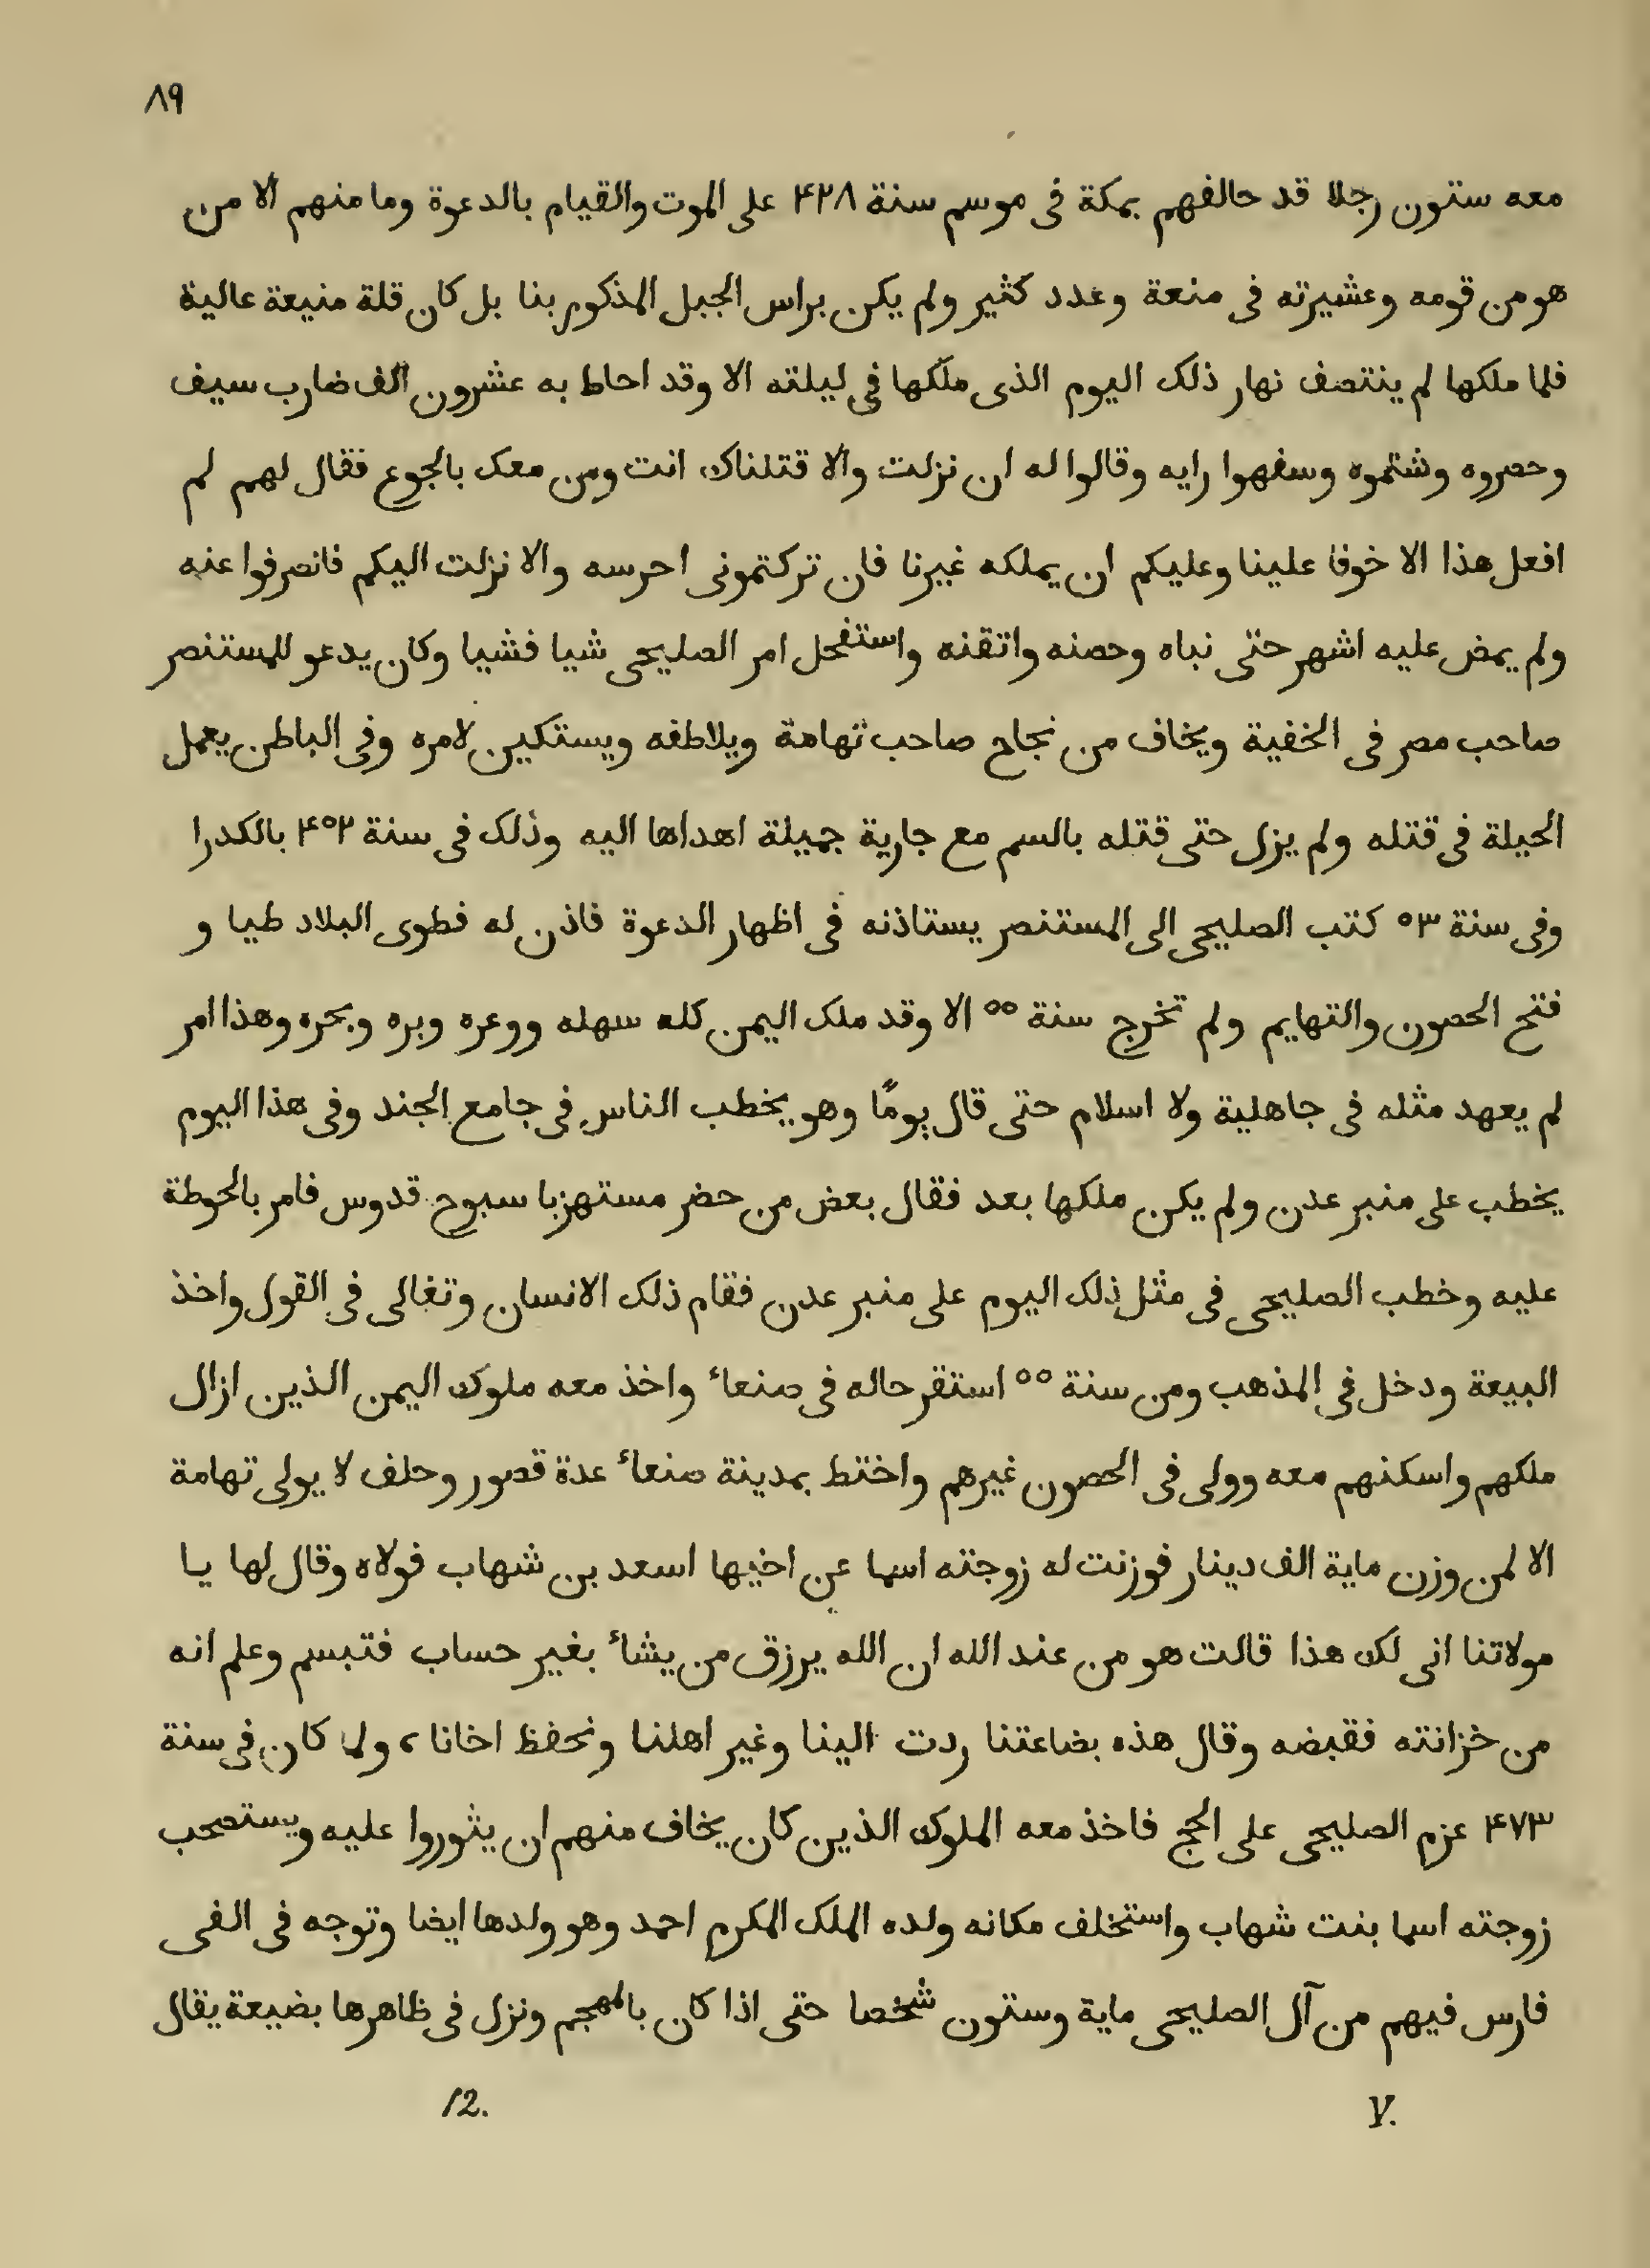 ٨٩
معه ستون رجلا قد حالفهم بمكة فى موسم سنة ۴۲۸ على الموت والقيام بالدعوة وما منهم الا من
هو من قومه وعشيرته فى منعة وعدد كثير ولم يكن براس الجبل المذكور بنا بل كان قلة منيعة عالية
فلما ملكها لم ينتصف نهار ذلك اليوم الذى ملكها فى ليلته الا وقد احاط به عشرون الف ضارب سيف
وحصروه وشتموه وسفهوا رايه وقالوا له ان نزلت والا قتلناك انت ومن معك بالجوع فقال لهم لم
افعل هذا الا خوفا علينا وعليكم ان يملكه غيرنا فان تركتمونى احرسه والا نزلت اليكم فانصرفوا عنه
ولم يمض عليه اشهر حتى نباه وحصنه واتقنه واستفحل امر الصليحى شيا فشيا وكان يدعو للمستنصر
صاحب مصر فى الخفية ويخاف من نجاح صاحب تهامة ويلاطفه ويستكين لامره وفى الباطن يعمل
الحيلة فى قتله ولم يزل حتى قتله بالسم مع جارية جميلة اهداها اليه وذلك فى سنة ۴٥۲ بالكدرا
وفى سنة ٥۳ كتب الصليحى الى المستنصر يستاذنه فى اظهار الدعوة فاذن له فطوى البلاد طيا و
فتح الحصون والتهايم ولم تخرج سنة ٥٥ الا وقد ملك اليمن كله سهله ووعره وبره وبحره وهذا امر
لم يعهد مثله فى جاهلية ولا اسلام حتى قال يومًا وهو يخطب الناس فى جامع الجند وفى هذا اليوم
يخطب على منبر عدن ولم يكن ملكها بعد فقال بعض من حضر مستهزيا سبوح قدوس فامر بالحوطة
عليه وخطب الصليحى فى مثل ذلك اليوم على منبر عدن فقام ذلك الانسان وتغالى فى القول واخذ
البيعة ودخل فى المذهب ومن سنة ٥٥ استقر حاله فى صنعاء واخذ معه ملوك اليمن الذين ازال
ملكهم واسكنهم معه وولى فى الحصون غيرهم واختط بمدينة صنعاء عدة قصور وحلف لا يولى تهامة
الا لمن وزن ماية الف دينار فوزنت له زوجته اسما عن اخيها اسعد بن شهاب فولاه وقال لها يا
مولاتنا انى لك هذا قالت هو من عند الله ان الله يرزق من يشاء بغير حساب فتبسم وعلم انه
من خزانته فقبضه وقال هذه بضاعتنا ردت الينا وغير اهلنا ونحفظ اخانا، ولما كان فى سنة
۴٧۳ عزم الصليحى على الحج فاخذ معه الملوك الذين كان يخاف منهم ان يثوروا عليه ويستصحب
زوجته اسما بنت شهاب واستخلف مكانه ولده الملك المكرم احمد وهو ولدها ايضا وتوجه فى الفى
فارس فيهم من آل الصليحى ماية وستون شخصا حتى اذا كان بالمهجم ونزل فى ظاهرها بضيعة يقال
V. 12.